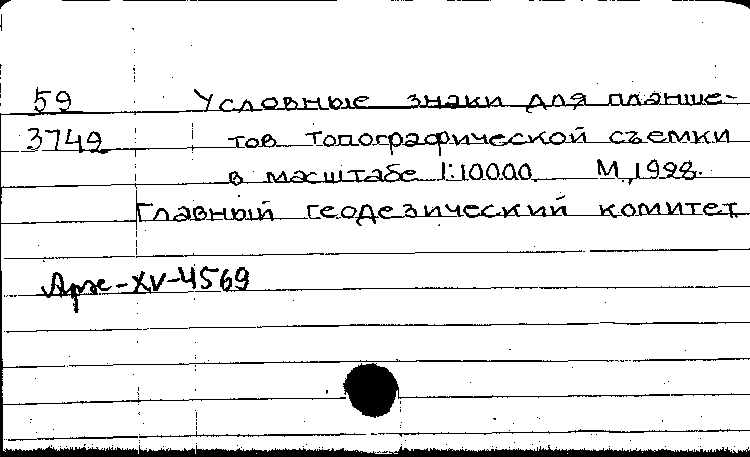 59 Условные знаки для планше-
3749 тов топографической съемки
в масштабе 1:10000. М, 1928.
Главный геодезический комитет
Арх-XV-4569